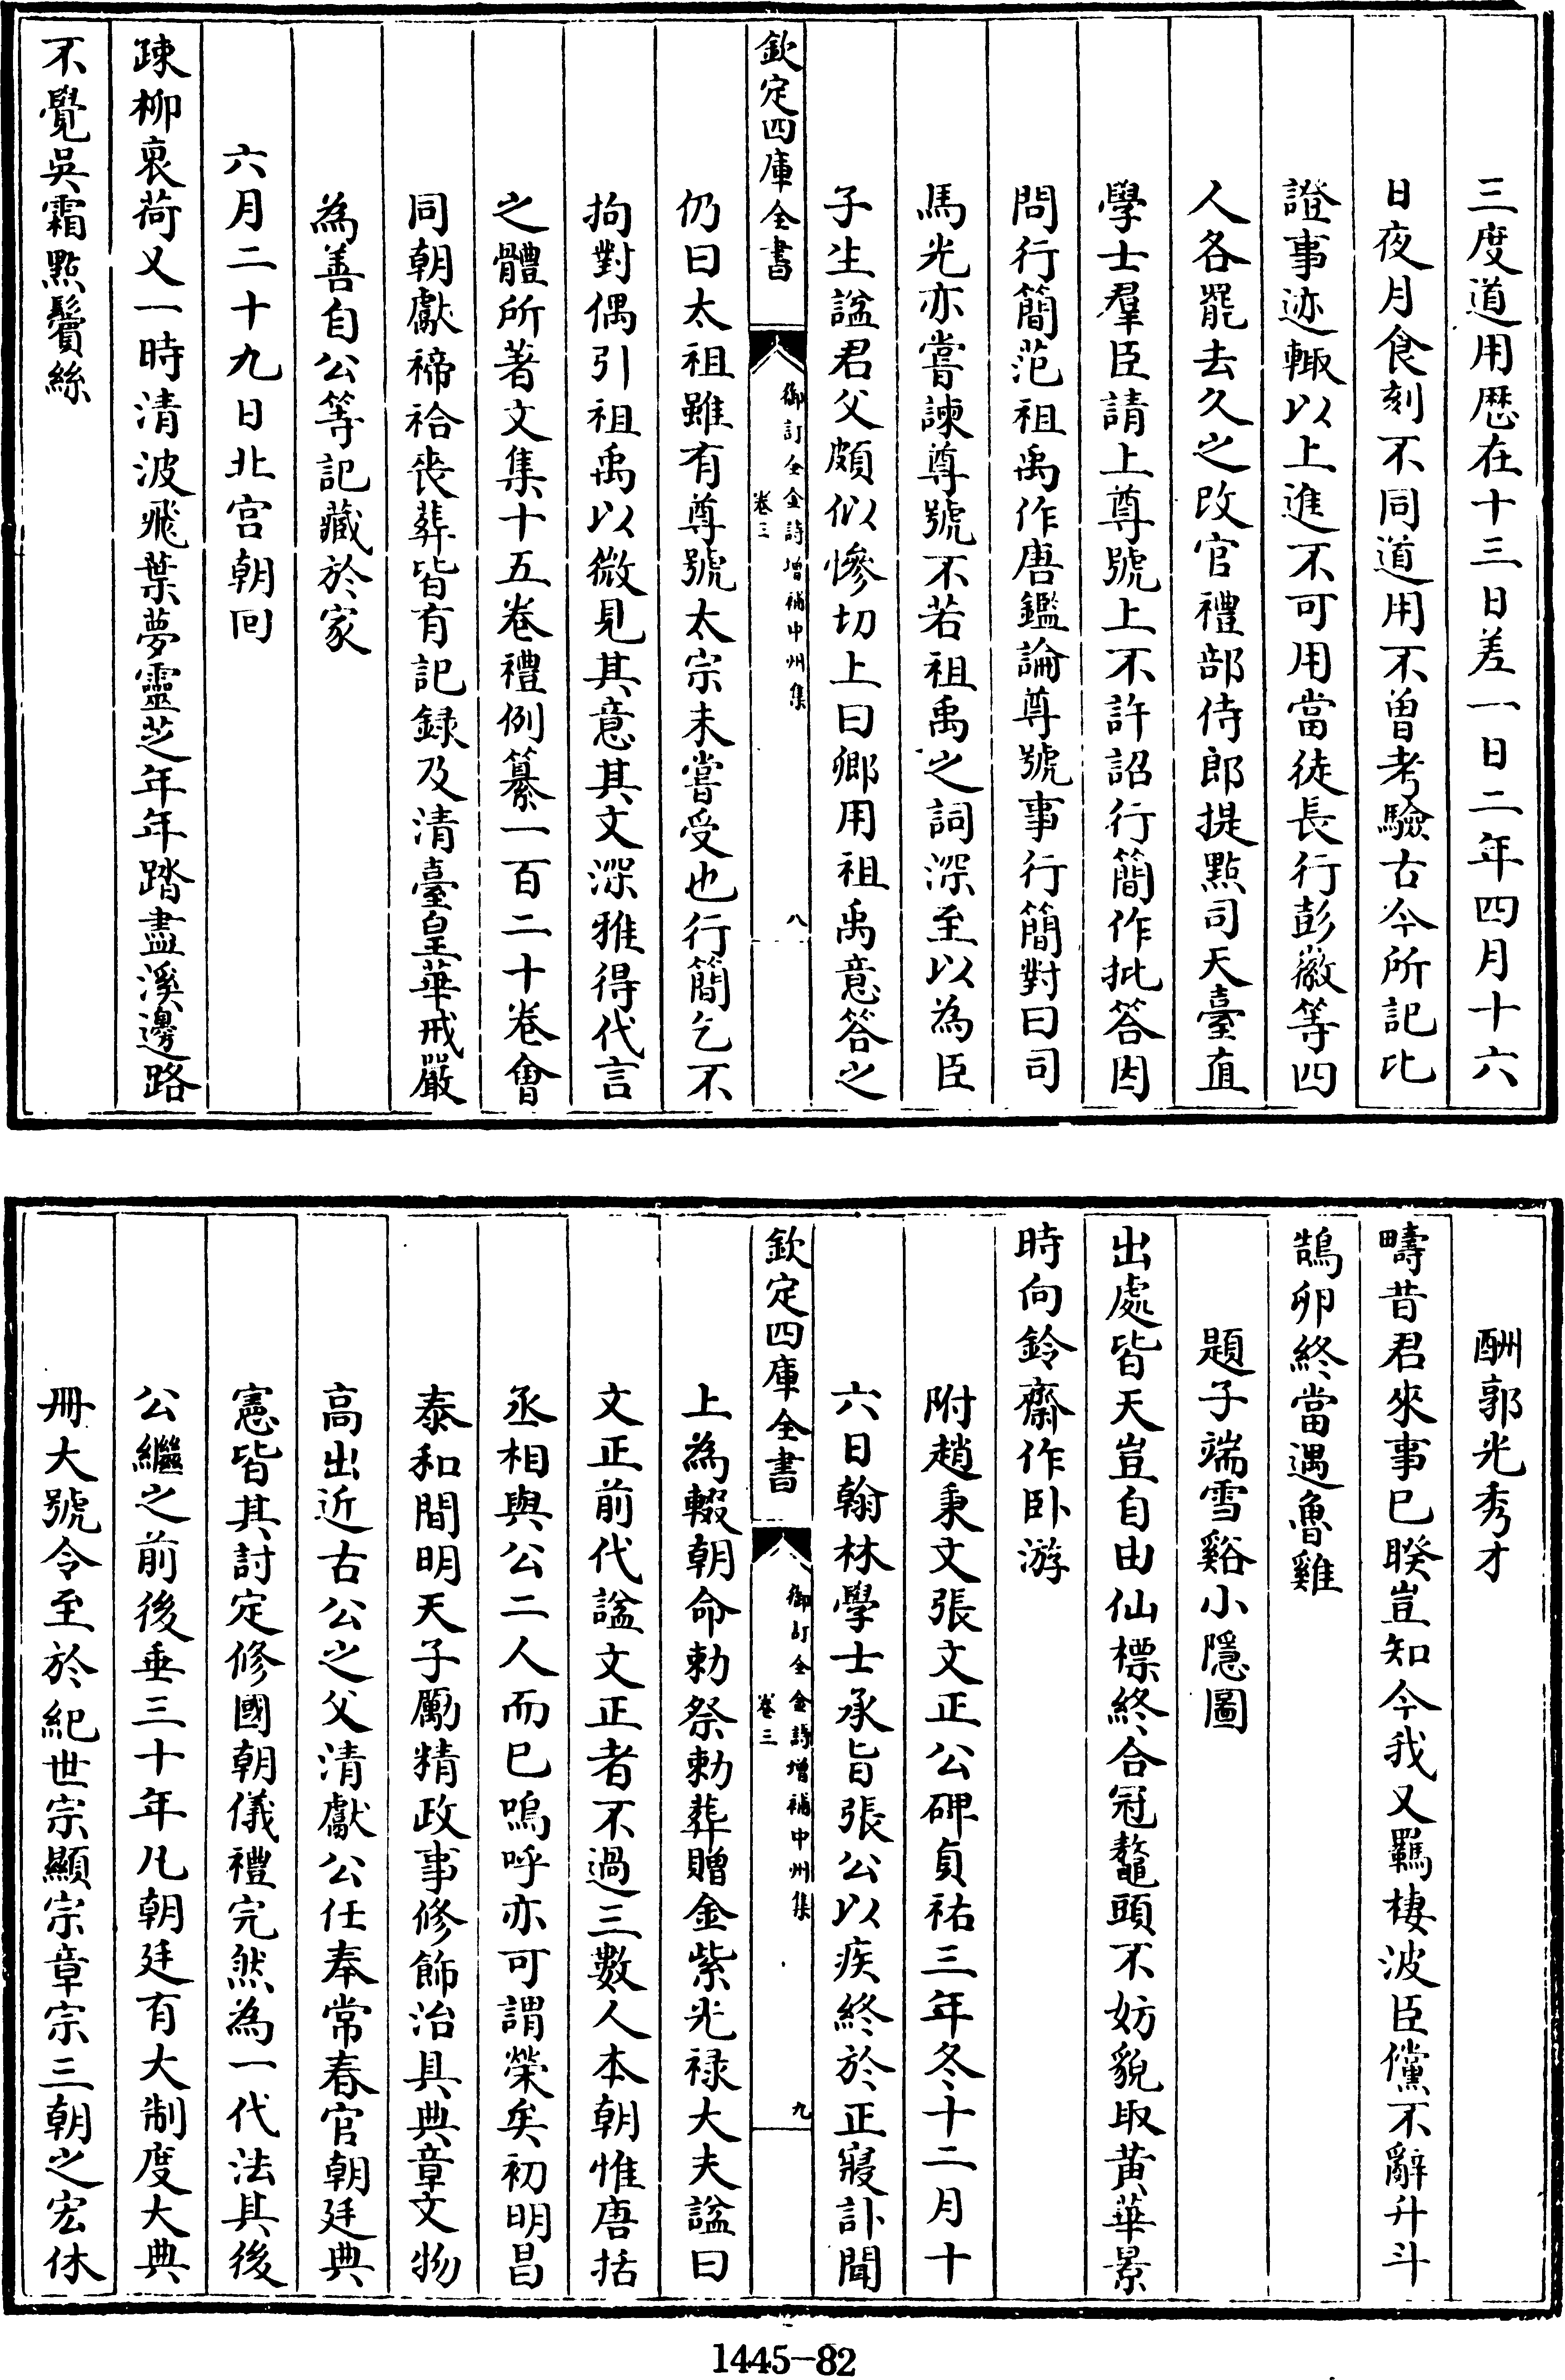 三度道用厯在十三日差一日二年四月十六
日夜月食刻不同道用不曽考驗古今所記比
證事迹輙以上進不可用當徒長行彭徽等四
人各罷去久之改官禮部侍郎提點司天臺直
學士羣臣請上尊號上不許詔行簡作批答因
問行簡范祖禹作唐鑑論尊號事行簡對曰司
馬光亦嘗諫尊號不若祖禹之詞深至以為臣
子生諡君父頗似慘切上曰卿用祖禹意答之
欽定四庫全書
御訂全金詩增補中州集
卷三
八
仍曰太祖雖有尊號太宗未嘗受也行簡乞不
拘對偶引祖禹以微見其意其文深雅得代言
之體所著文集十五卷禮例纂一百二十卷會
同朝獻禘祫喪葬皆有記録及清臺皇華戒嚴
為善自公等記藏於家
六月二十九日北宫朝囘
踈柳衰荷又一時清波飛葉夢靈芝年年踏盡溪邊路
不覺吳霜點鬢絲
酬郭光秀才
疇昔君來事已暌豈知今我又羈棲波臣儻不辭升斗
鵠卵終當遇魯雞
題子端雪谿小隱圖
出處皆天豈自由仙標終合冠鼇頭不妨貌取黄華景
時向鈴齋作卧游
附趙秉文張文正公碑貞祐三年冬十二月十
六日翰林學士承旨張公以疾終於正寢訃聞
欽定四庫全書
御訂全金詩增補中州集
卷三
九
上為輟朝命勅祭勅葬贈金紫光禄大夫諡曰
文正前代諡文正者不過三數人本朝惟唐括
丞相與公二人而已嗚呼亦可謂榮矣初明昌
泰和間明天子勵精政事修飾治具典章文物
高出近古公之父清獻公任奉常春官朝廷典
憲皆其討定修國朝儀禮完然為一代法其後
公繼之前後垂三十年凡朝廷有大制度大典
冊大號令至於紀世宗顯宗章宗三朝之宏休
1445-82